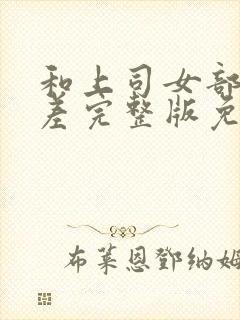 和上司女部
差完整版免
布莱恩鄧纳姆